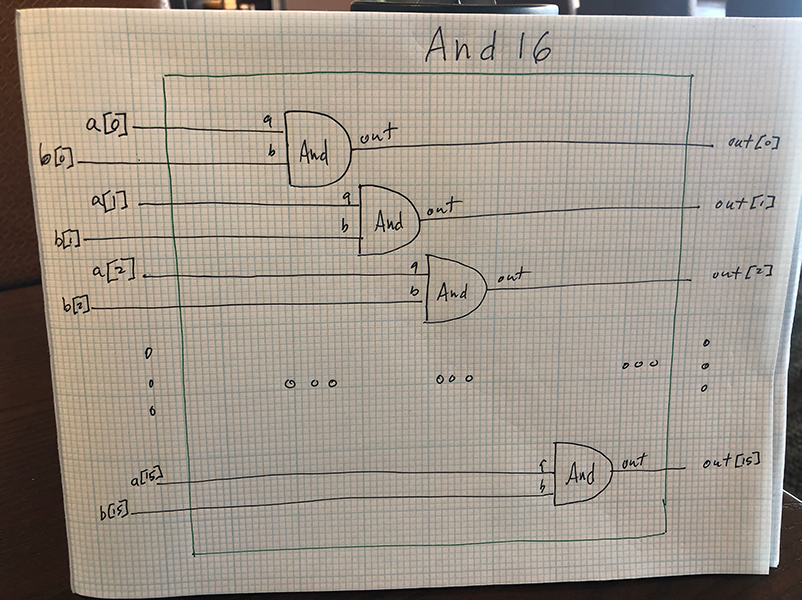 And 16
a[0] a out
b[0] b And out[0]
a[1] a out
b[1] b And out[1]
a[2] a out
b[2] b And out[2]
a[15] out out[15]
b[15] b And